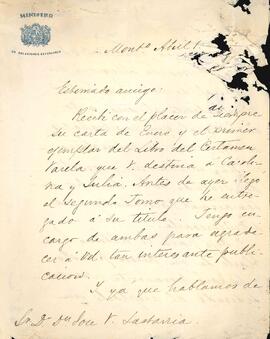 MINISTRO
DE RELACIONES EXTERIORES
Montº Abril 1
Estimado amigo:
Recibí con el placer de siempre
su carta de Enero y el primer
ejemplar del Libro del Certamen
Varela que V. destina a Caroli-
na y Julia. Antes de ayer llegó
el Segundo Tomo que he entre-
gado á su título. Tengo en-
cargo de ambas para agrade-
cer á Vd. tan interesante publi-
cacion.
Y ya que hablamos de
Sr. D. Dn Jose V. Lastarria